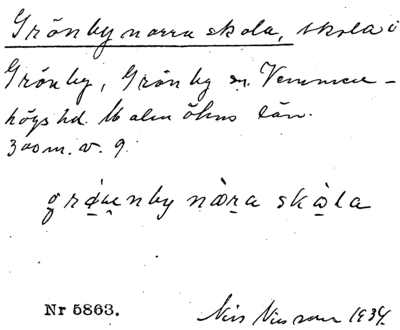 Grönby norra skola, skola i
Grönby, Grönby sn. Vemmen-
högs hd. Malmöhus län.
300 m. v. 9.
nȯ̀ṟa skȯ̀la
Nr 5863. Nils Nilsson 1934.